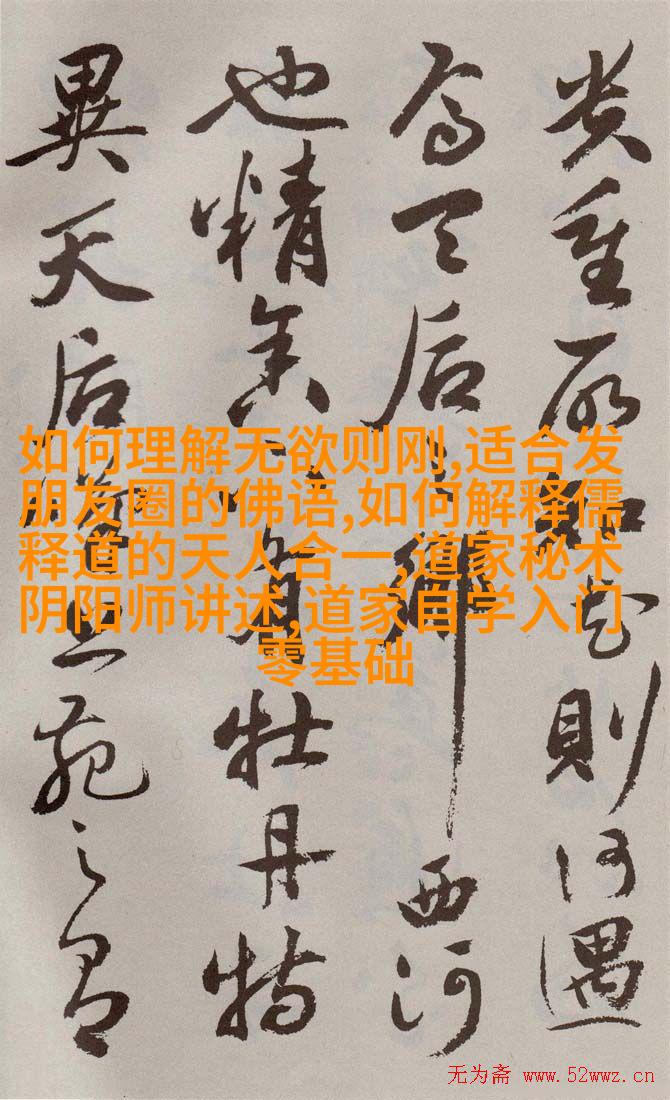 貴重所知花則何遇
焉天后鄉西河
也精舍有牡丹特
異天后上苑之有
如何理解无欲则刚,适合发
朋友圈的佛语,如何解释儒
释道的天人合一,道家秘术
阴阳师讲述,道家自学入门
零基础
无为斋 www.52wwz.cn